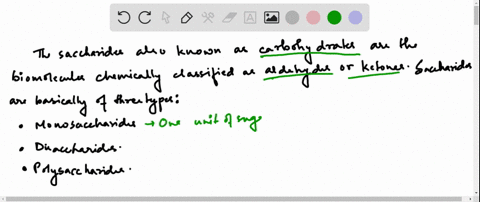 The saccharides also known as carbohydrates are the
biomolecules chemically classified as aldehydes or ketones. Saccharides
are basically of three types:
• Monosaccharides → One unit of suga
• Disaccharides.
• Polysaccharides.